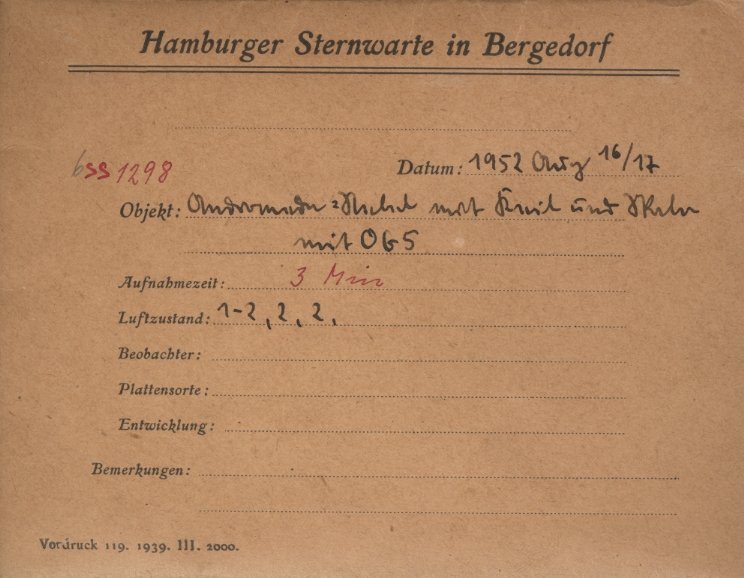 Hamburger Sternwarte in Bergedorf
bss 1298
Datum: 1952 Aug 16/17
Objekt: Andromeda-Nebel mit Keil und Skala
mit OG5
Aufnahmezeit: 3 Min
Luftzustand: 1-2, 2, 2,
Beobachter:
Plattensorte:
Entwicklung:
Bemerkungen:
Vordruck 119. 1939. III. 2000.